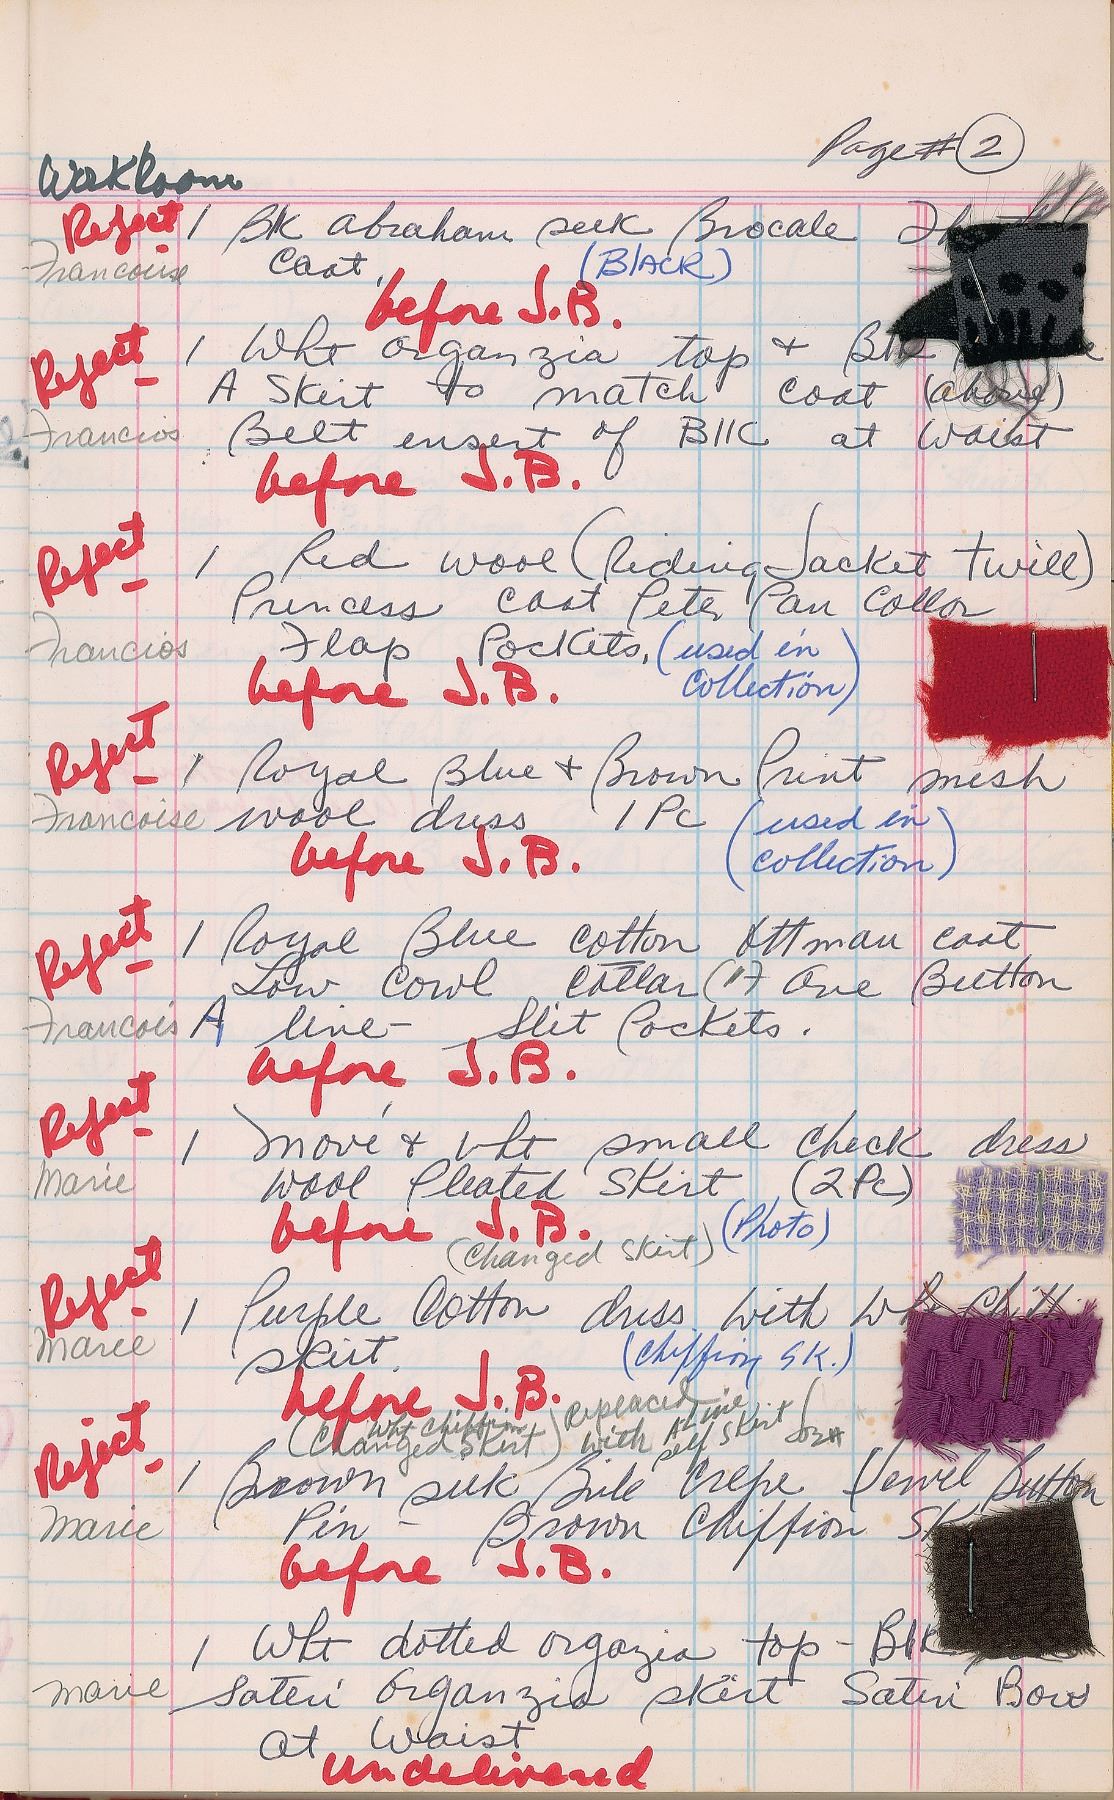 Page # 2
WorkRoom
Reject 1 BK abraham seek Brocale
Francoise Coat, (BlACK)
before J.B.
Reject 1 Wht organzia top + Blk
A Skirt to match coat (above)
Francios Belt ensert of BllK at Waist
before J.B.
Reject 1 Red wool (Riding Jacket twill)
Princess coat Peter Pan Collor
Francios Flap Pockets, (used in
before J.B. collection)
Reject 1 Royal Blue + Brown Print mesh
Francoise wool dress 1 Pc (used in
before J.B. collection)
Reject 1 Royal Blue cotton Ottman coat
Low Cowl Collar (1) One Button
Francois A line - Slit Pockets.
before J.B.
Reject 1 Mové + wht small check dress
Marie wool Pleated Skirt (2 Pc)
before J.B. (Photo)
(Changed Skirt)
Reject 1 Purple Cotton dress with Wht Chiff
Marie skirt. (Chiffion SK.)
before J.B.
(Changed Skirt) Wht Chiffion Replaced with A line self Skirt
Reject 1 Brown seek Crepe Jewel Button
Marie Pin - Brown Chiffion SK
before J.B.
1 Wht dotted orgazia top - Blk
Marie Saten Organzia skirt Saten Bow
at Waist
undelivered